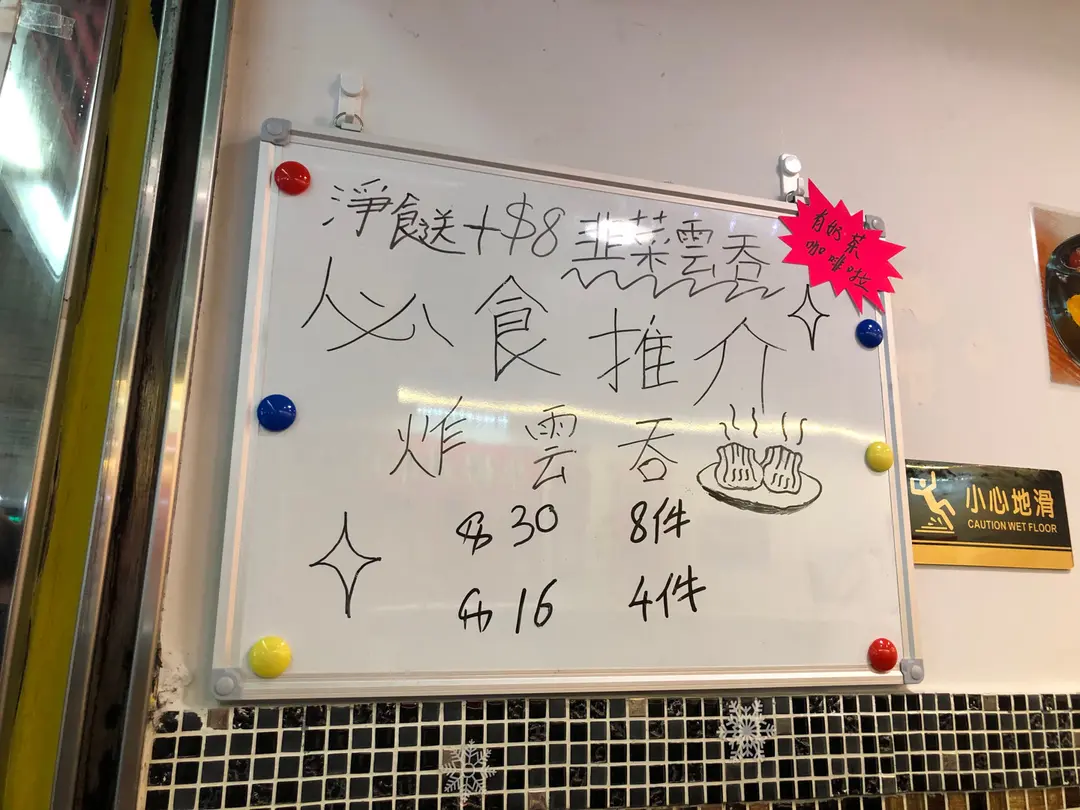 淨食送+$8 韭菜雲吞
有奶茶
咖啡啦
人必食推介
炸雲吞
$30 8件
$16 4件
小心地滑
CAUTION WET FLOOR